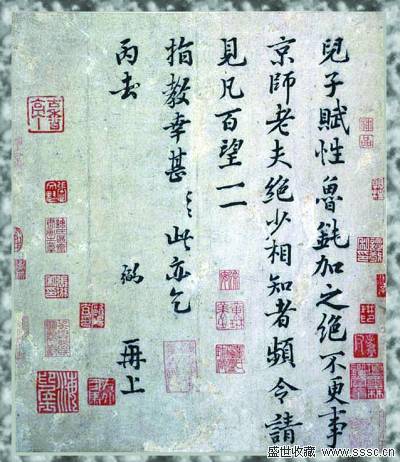 兒子賦性魯鈍加之絕不更事
京師老夫絕少相知者頻令請
見凡百望一一
指教幸甚〻〻此亦乞
丙去 弼 再上
盛世收藏 www.sssc.cn